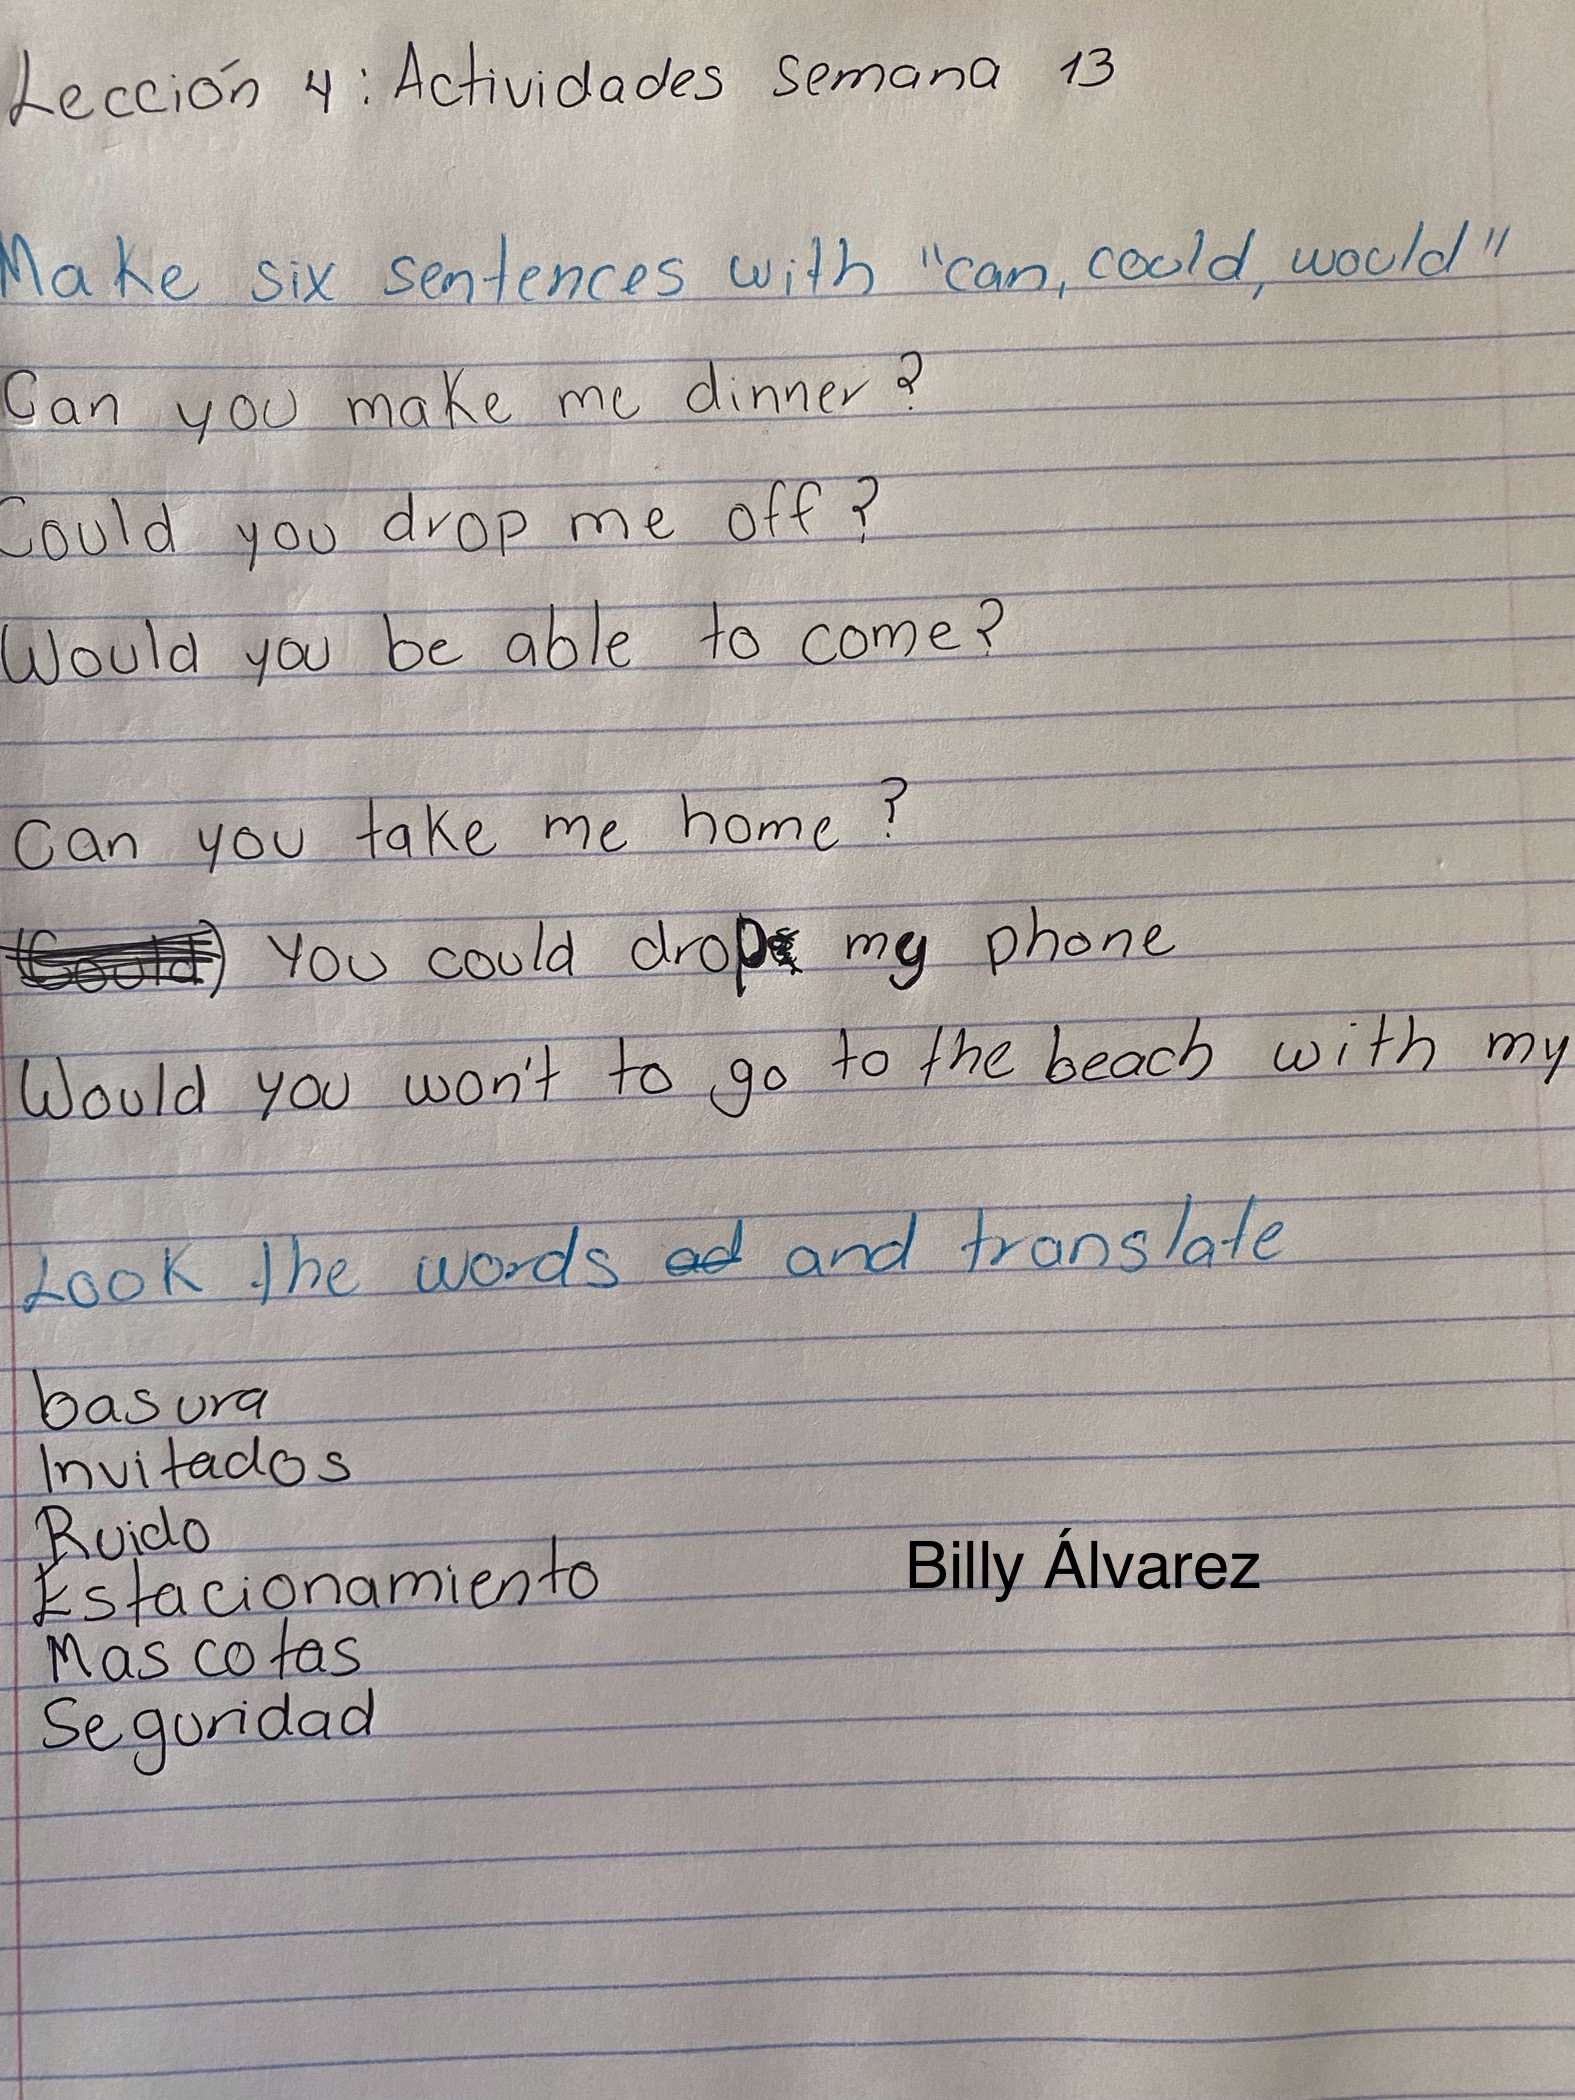 Lección 4: Actividades semana 13
Make six sentences with "can, could, would"
Can you make me dinner?
Could you drop me off?
Would you be able to come?
Can you take me home?
(Could) You could drop my phone
Would you won't to go to the beach with my
Look the words ad and translate
basura
Invitados
Ruido
Estacionamiento
Billy Álvarez
Mascotas
Seguridad